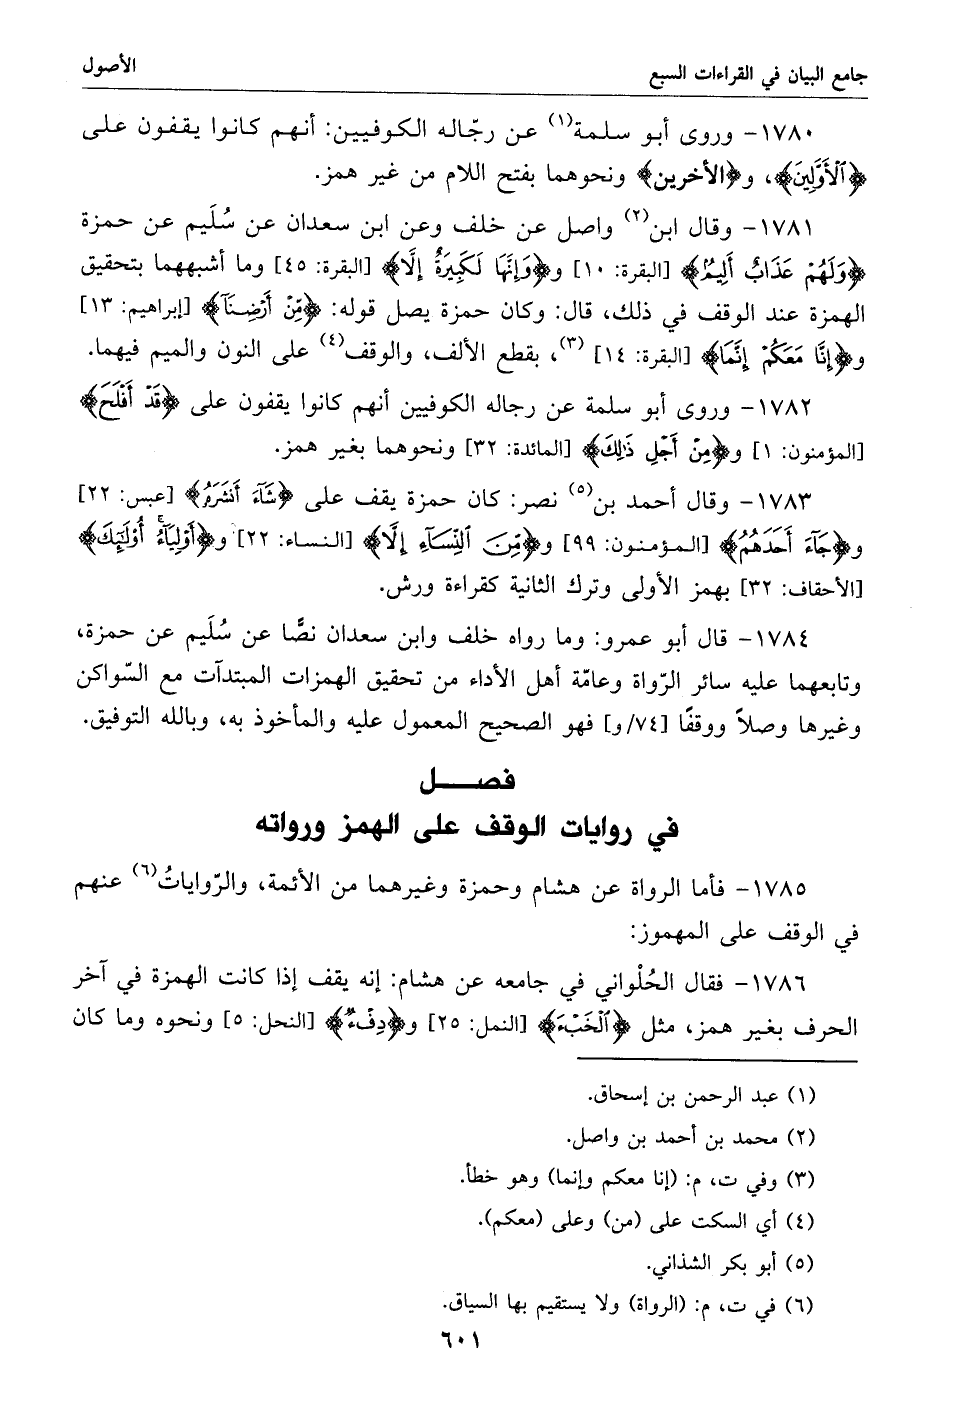 جامع البيان في القراءات السبع
الأصول
١٧٨٠- وروى أبو سلمة(١) عن رجّاله الكوفيين: أنهم كانوا يقفون على
﴿ٱلْأَوَّلِينَ﴾، و﴿الأخرين﴾ ونحوهما بفتح اللام من غير همز.
١٧٨١- وقال ابن(٢) واصل عن خلف وعن ابن سعدان عن سُلَيم عن حمزة
﴿وَلَهُمْ عَذَابٌ أَلِيمٌ﴾ [البقرة: ١٠] و﴿وَإِنَّهَا لَكَبِيرَةٌ إِلَّا﴾ [البقرة: ٤٥] وما أشبههما بتحقيق
الهمزة عند الوقف في ذلك، قال: وكان حمزة يصل قوله: ﴿مِّنْ أَرْضِنَآ﴾ [إبراهيم: ١٣]
و﴿إِنَّا مَعَكُمْ إِنَّمَا﴾ [البقرة: ١٤] (٣)، بقطع الألف، والوقف(٤) على النون والميم فيهما.
١٧٨٢- وروى أبو سلمة عن رجاله الكوفيين أنهم كانوا يقفون على ﴿قَدْ أَفْلَحَ﴾
[المؤمنون: ١] و﴿مِنْ أَجْلِ ذَٰلِكَ﴾ [المائدة: ٣٢] ونحوهما بغير همز.
١٧٨٣- وقال أحمد بن(٥) نصر: كان حمزة يقف على ﴿شَآءَ أَنشَرَهُۥ﴾ [عبس: ٢٢]
و﴿جَآءَ أَحَدَهُمُ﴾ [المؤمنون: ٩٩] و﴿مِّنَ ٱلنِّسَآءِ إِلَّا﴾ [النساء: ٢٢] و﴿أَوْلِيَآءُ أُوْلَٰٓئِكَ﴾
[الأحقاف: ٣٢] بهمز الأولى وترك الثانية كقراءة ورش.
١٧٨٤- قال أبو عمرو: وما رواه خلف وابن سعدان نصًّا عن سُلَيم عن حمزة،
وتابعهما عليه سائر الرّواة وعامّة أهل الأداء من تحقيق الهمزات المبتدآت مع السّواكن
وغيرها وصلاً ووقفًا [٧٤/و] فهو الصحيح المعمول عليه والمأخوذ به، وبالله التوفيق.
فصـــل
في روايات الوقف على الهمز ورواته
١٧٨٥- فأما الرواة عن هشام وحمزة وغيرهما من الأئمة، والرّواياتُ(٦) عنهم
في الوقف على المهموز:
١٧٨٦- فقال الحُلْواني في جامعه عن هشام: إنه يقف إذا كانت الهمزة في آخر
الحرف بغير همز، مثل ﴿ٱلْخَبْءَ﴾ [النمل: ٢٥] و﴿دِفْءٌ﴾ [النحل: ٥] ونحوه وما كان
(١) عبد الرحمن بن إسحاق.
(٢) محمد بن أحمد بن واصل.
(٣) وفي ت، م: (إنا معكم وإنما) وهو خطأ.
(٤) أي السكت على (من) وعلى (معكم).
(٥) أبو بكر الشذاني.
(٦) في ت، م: (الرواة) ولا يستقيم بها السياق.
٦٠١